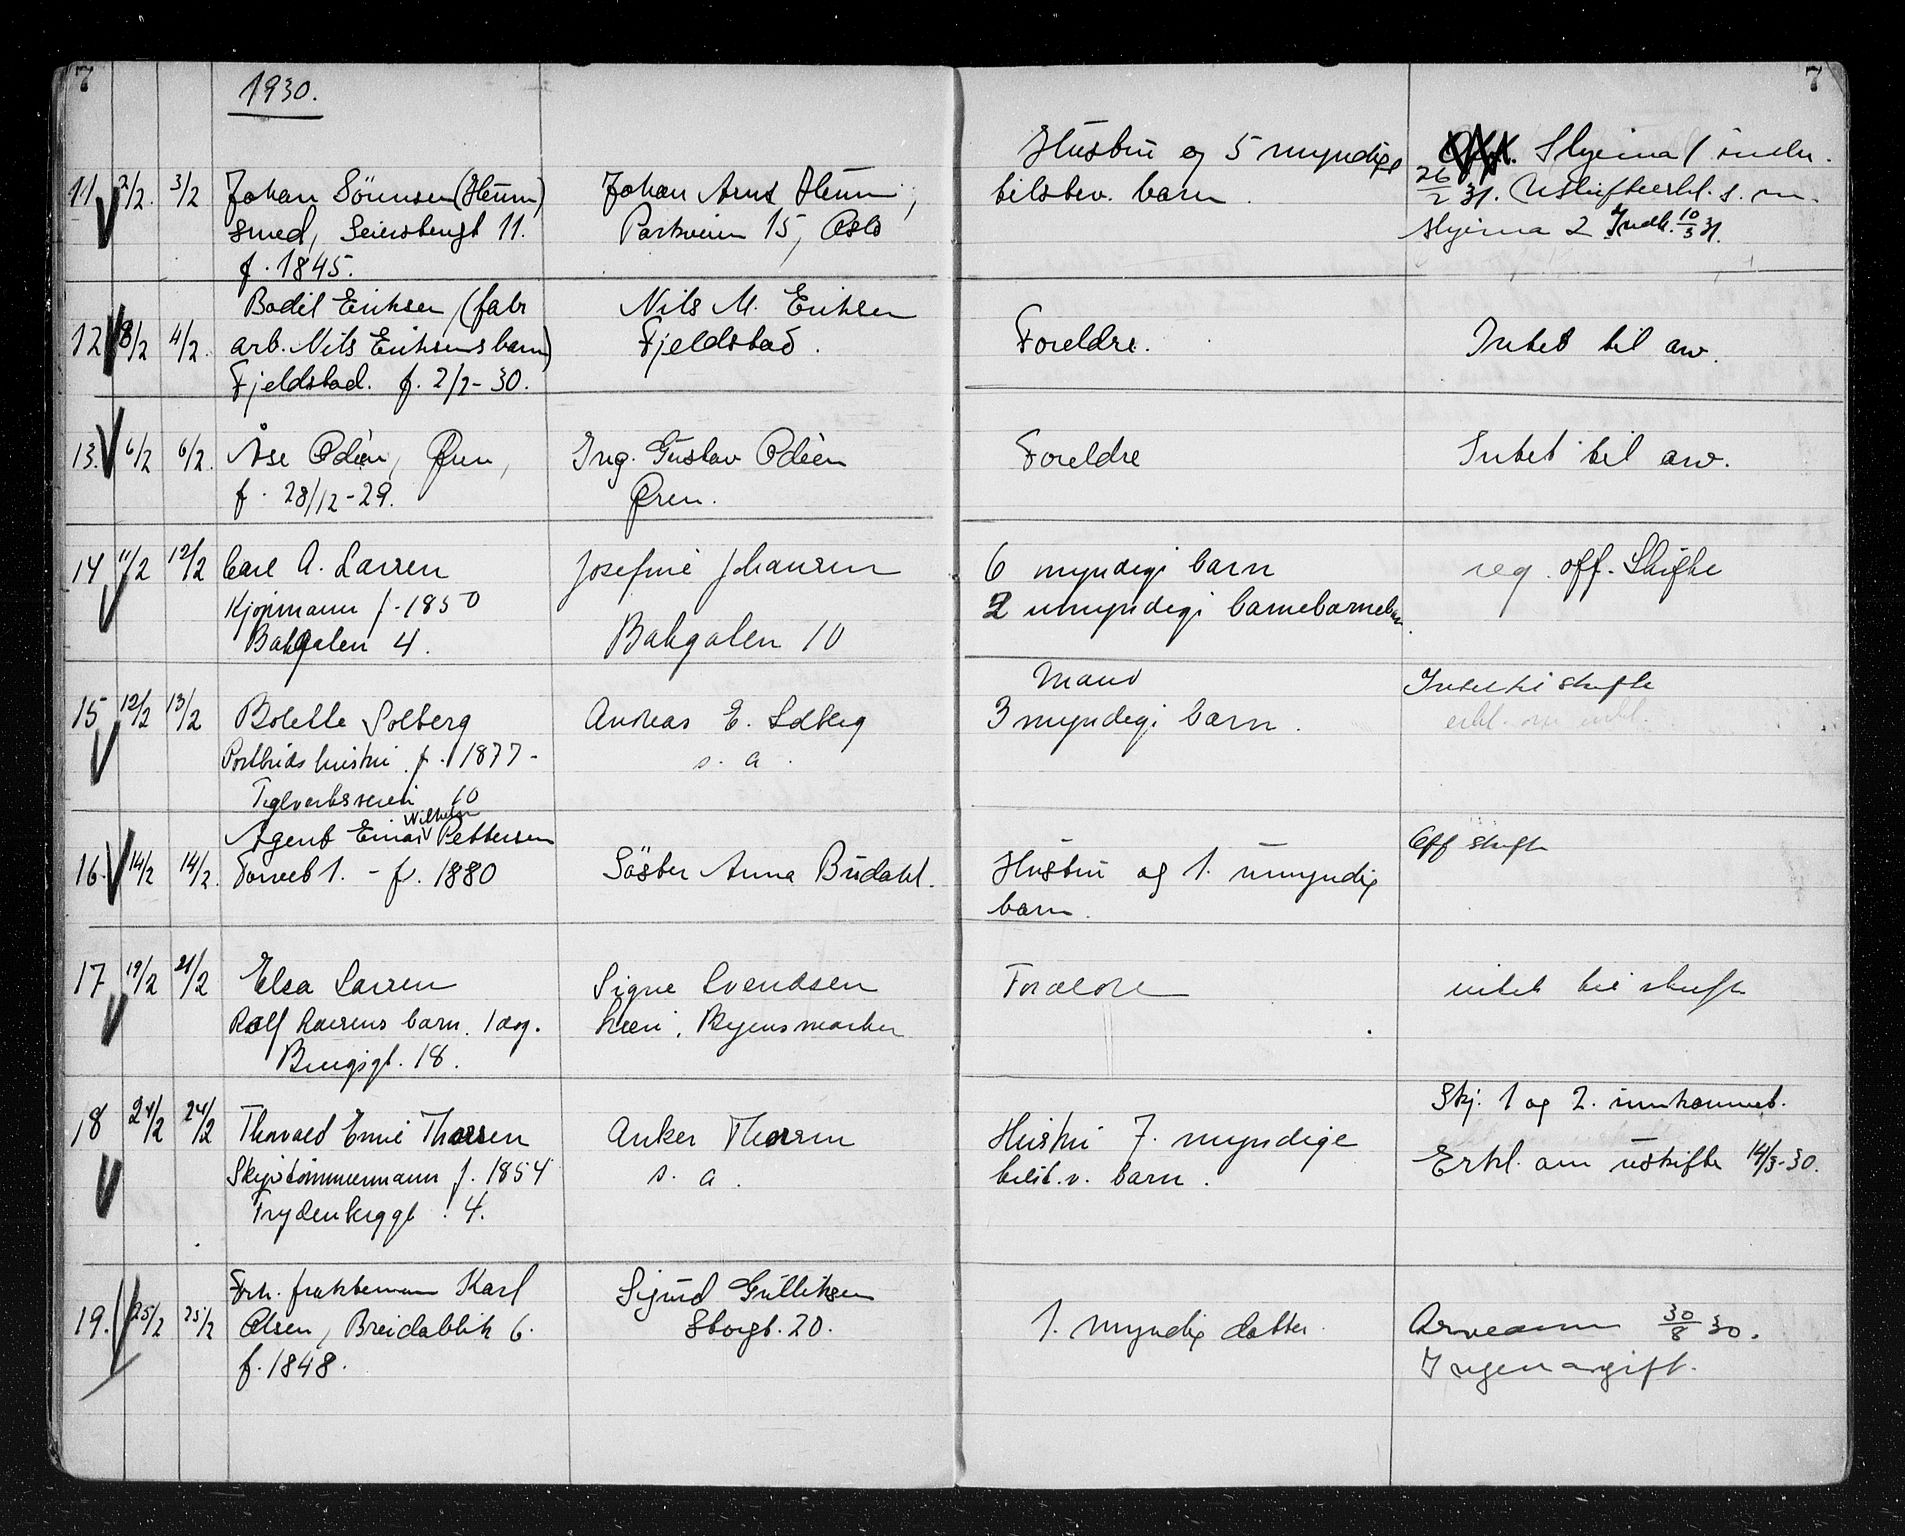 7
7
1930.
11 2/2. 3/2 Johan Sörensen (Hem) Johan Arnt Hem, Hustru og 5 myndige
smed, Seiersbergt 11. Parkveien 15, Oslo tilstev. barn.
f. 1845.
Skjema 1 innlev.
26/2 31. Uskifteerkl. s. m.
skjema 2 Indk. 10/3 31.
12 3/2 4/2. Bodil Eriksen (fabr Nils M. Eriksen
arb. Nils Eriksens barn) Fjeldstad. Foreldre. Intet til arv.
Fjeldstad. f. 2/2-30.
13. 6/2 6/2. Åse Odéen, Øren, Ing. Gustav Odéen Foreldre Intet til arv.
f. 28/12-29. Øren.
14 11/2 12/2 Carl A. Larsen Josefine Johansen 6 myndige barn reg. off. Skifte
Kjøpmann f. 1850 2 umyndige barnebarnebarn.
Bakgaten 4. Bakgaten 10
Mann Intet til skifte
15 12/2 13/2 Bolette Solberg Andreas E. Solberg 3 myndige barn.
Postbuds hustru f. 1877- s. a.
Teglverksveien 10
Wilhelm
16. 14/2 14/2. Agent Einar Pettersen Off skifte
Torvet 1. - f. 1880 Söster Anna Budahl. Hustru og 1. umyndig
barn.
17 19/2 21/2 Elsa Larsen Signe Svendsen Foreldre intet til skifte
Rolf Larsens barn. 1 dag.
Bergsgt. 18.
Skj. 1 og 2. innkommet.
18 24/2 24/2 Thorvald Emil Thorsen Anker Thorsen Hustru 7. myndige Erkl. om uskifte 14/3-30.
Skipstømmermann f. 1854 s. a. tilst.v. barn.
Frydenberggt. 4.
19. 25/2 25/2 Frh. fraktemann Karl Sigurd Gulliksen
Olsen, Breidablik 6. Storgt. 20. 1. myndig datter. Arveanm 30/8 30.
f. 1848. Ingen avgift.